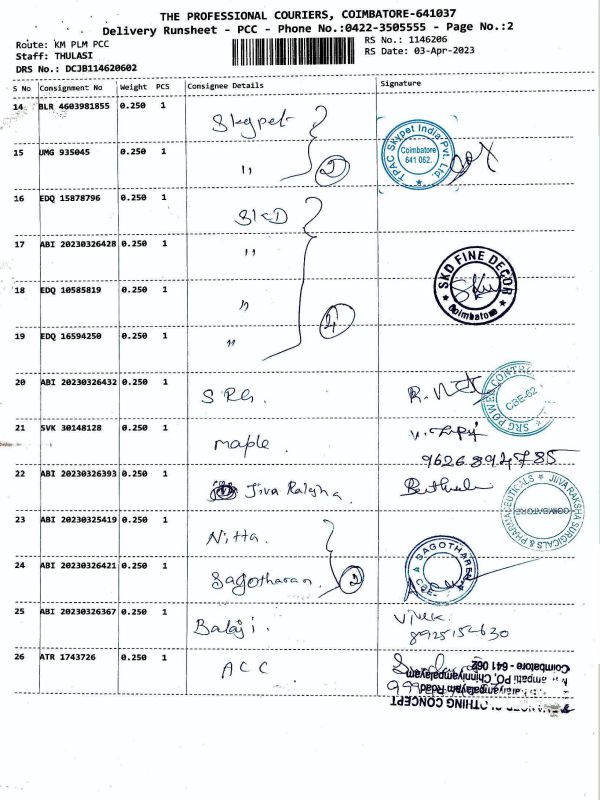 THE PROFESSIONAL COURIERS, COIMBATORE-641037
Delivery Runsheet - PCC - Phone No.:0422-3505555 - Page No.:2
Route: KM PLM PCC
Staff: THULASI
DRS No.: DCJB114620602
RS No.: 1146206
RS Date: 03-Apr-2023
S No Consignment No Weight PCS Consignee Details Signature
14 BLR 4603981855 0.250 1 Skypet
15 UMG 935045 0.250 1 " 2
TPAC Skypet India Pvt. Ltd
Coimbatore
641 062.
16 EDQ 15878796 0.250 1 SKD
17 ABI 20230326428 0.250 1 "
18 EDQ 10585819 0.250 1 " 4
SKD FINE DECOR
Coimbatore
19 EDQ 16594250 0.250 1 "
20 ABI 20230326432 0.250 1 SRG.
SRG POWER CONTR
CBE-62
21 SVK 30148128 0.250 1 maple.
9626894785
22 ABI 20230326393 0.250 1 Jiva Raksha.
JIIVA RAKSHA SURGICALS & PHARMACEUTICALS
COIMBATORE
23 ABI 20230325419 0.250 1 Nitta.
24 ABI 20230326421 0.250 1 Sagotharan. 2
SAGOTHAREN
CBE
25 ABI 20230326367 0.250 1 Balaji. Vivek
8925154630
26 ATR 1743726 0.250 1 ACC
Coimbatore - 641 062
PO, Chinniyampalayam
CLOTHING CONCEPT